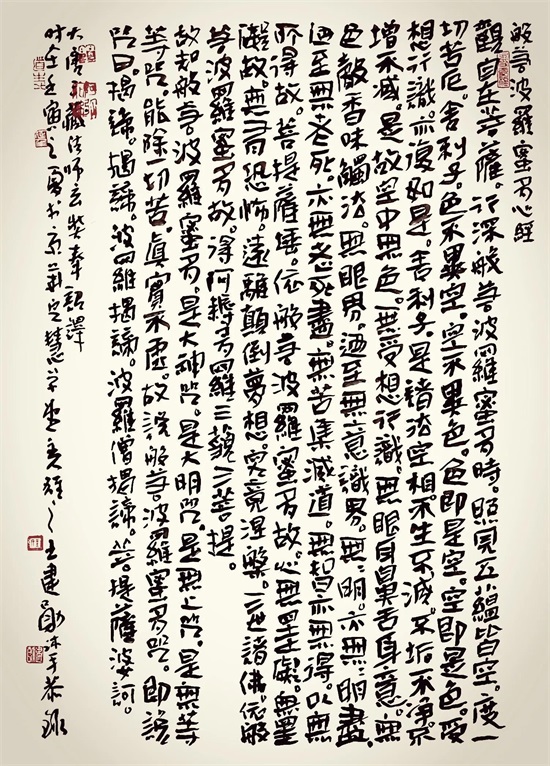 般若波羅蜜多心經
觀自在菩薩。行深般若波羅蜜多時。照見五蘊皆空。度一
切苦厄。舍利子。色不異空。空不異色。色即是空。空即是色。受
想行識。亦復如是。舍利子。是諸法空相。不生不滅。不垢不淨。不
增不減。是故空中無色。無受想行識。無眼耳鼻舌身意。無
色聲香味觸法。無眼界。迺至無意識界。無無明。亦無無明盡。
迺至無老死。亦無老死盡。無苦集滅道。無智亦無得。以無
所得故。菩提薩埵。依般若波羅蜜多故。心無罣礙。無罣
礙故。無有恐怖。遠離顛倒夢想。究竟涅槃。三世諸佛。依般
若波羅蜜多故。得阿耨多羅三藐三菩提。
故知般若波羅蜜多。是大神咒。是大明咒。是無上咒。是無等
等咒。能除一切苦。真實不虛。故說般若波羅蜜多咒。即說
咒曰。揭諦。揭諦。波羅揭諦。波羅僧揭諦。菩提薩婆訶。
大唐三藏法師玄奘奉詔譯
時在 王建勛沐手恭錄